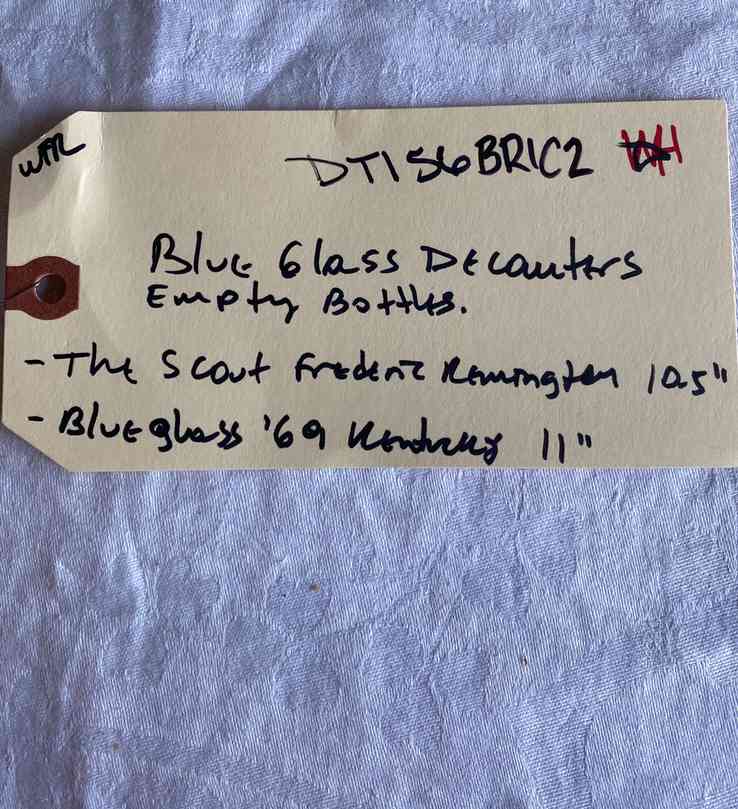 WFR
DT156BR1C2 WH
Blue Glass Decanters
Empty Bottles.
- The Scout Frederic Remington 10.5"
- Blueglass '69 Kentucky 11"